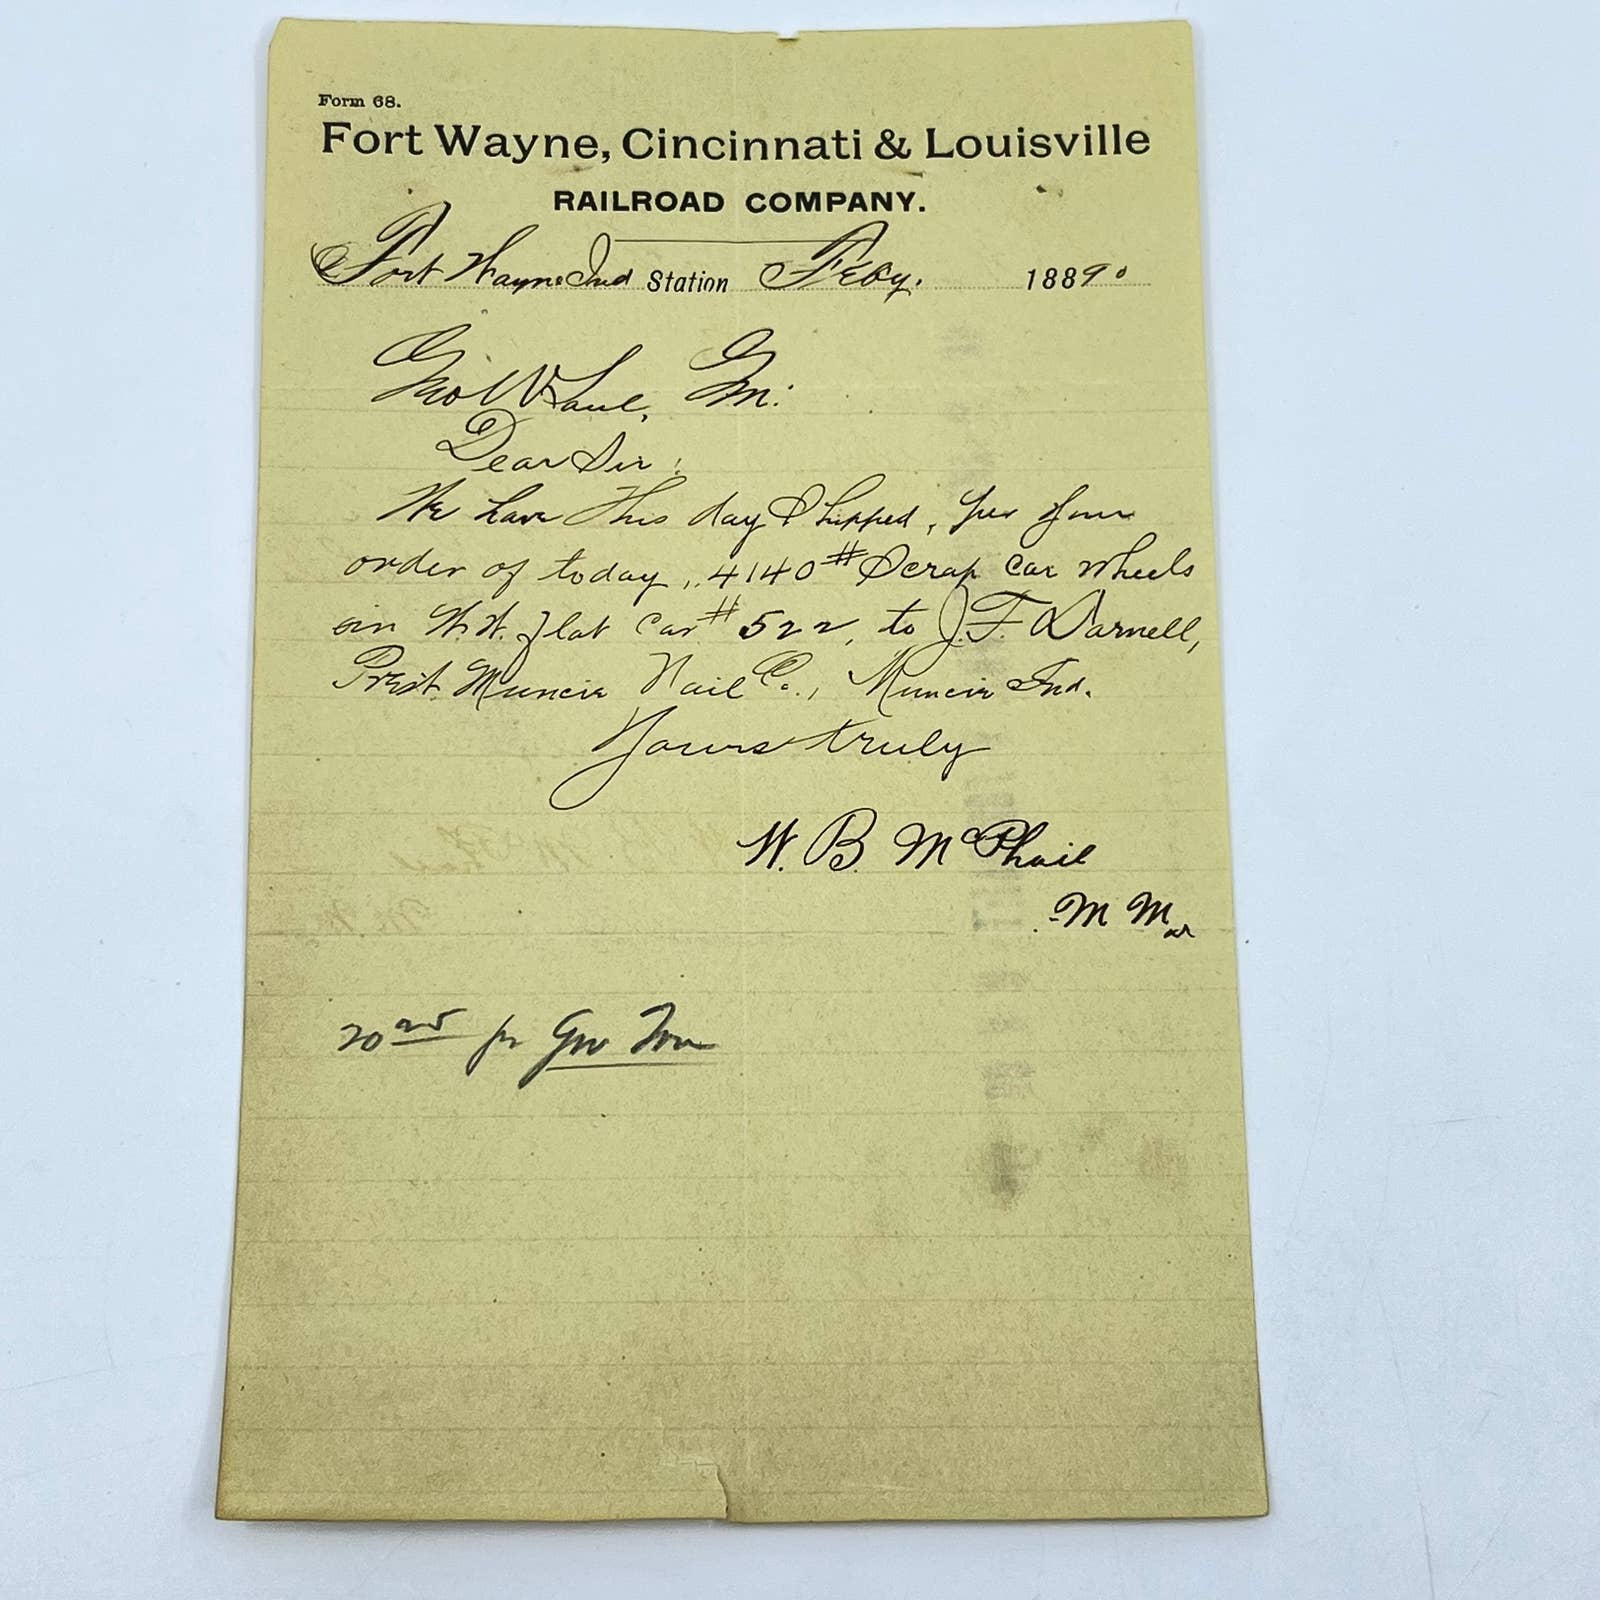 Form 68.
Fort Wayne, Cincinnati & Louisville
RAILROAD COMPANY.
Fort Wayne Ind Station Feby. 1889 0
Geo W Saul, Gm:
Dear Sir:
We have this day Shipped, per your
order of today, 4140# Scrap car wheels
in W.W. flat car # 522, to J.F. Darnell,
Prest. Muncie Nail Co., Muncie Ind.
Yours truly
W. B. McPhail
M M
20 25 pr